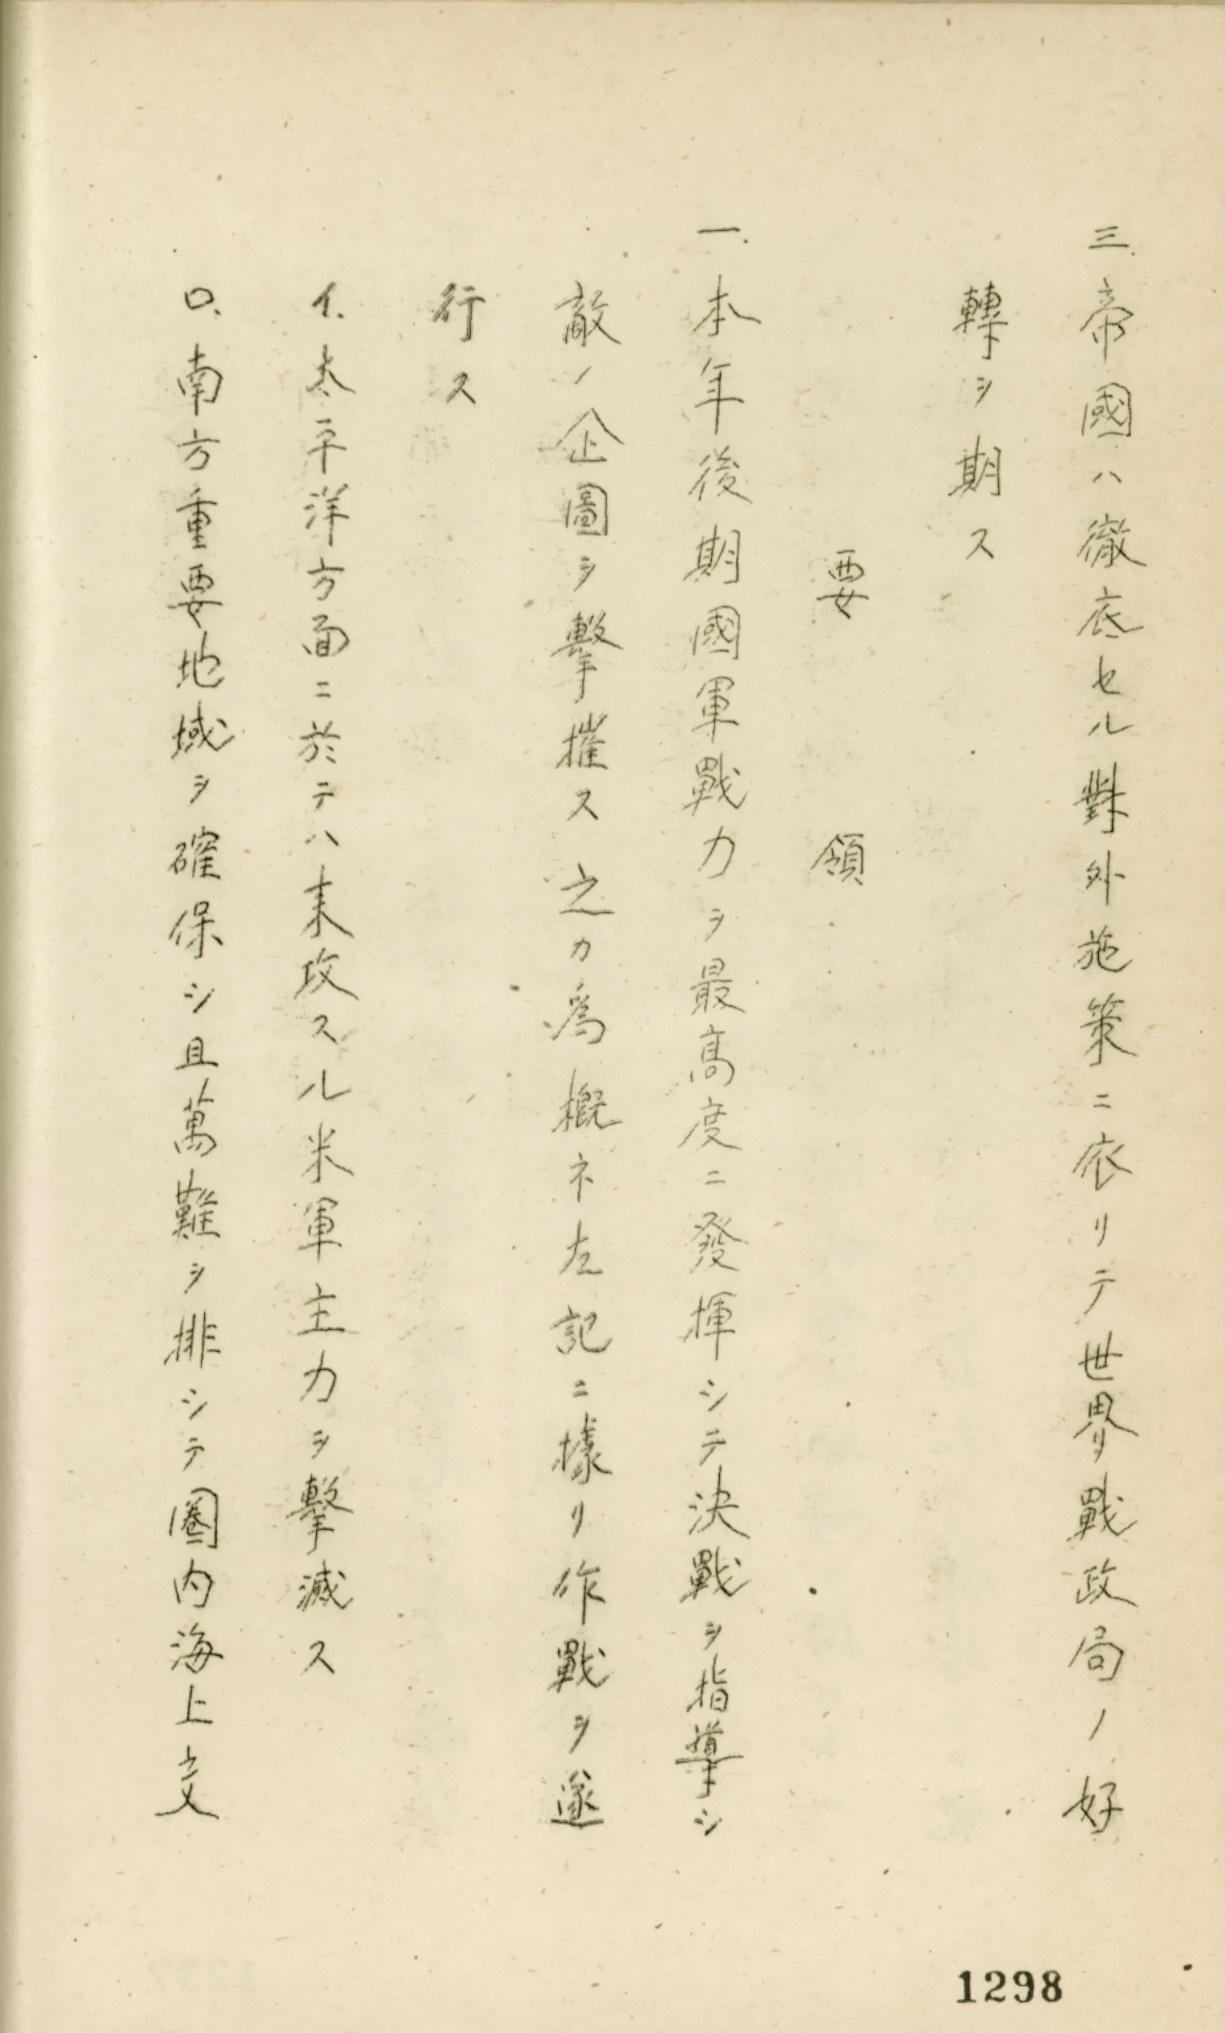 三、帝國ハ徹底セル對外施策ニ依リテ世界戰政局ノ好
轉ヲ期ス
要領
一、本年後期國軍戰力ヲ最高度ニ發揮シテ決戰ヲ指導シ
敵ノ企圖ヲ撃摧ス之カ爲概ネ左記ニ據リ作戰ヲ遂
行ス
イ、太平洋方面ニ於テハ来攻スル米軍主力ヲ撃滅ス
ロ、南方重要地域ヲ確保シ且萬難ヲ排シテ圈内海上交
1298